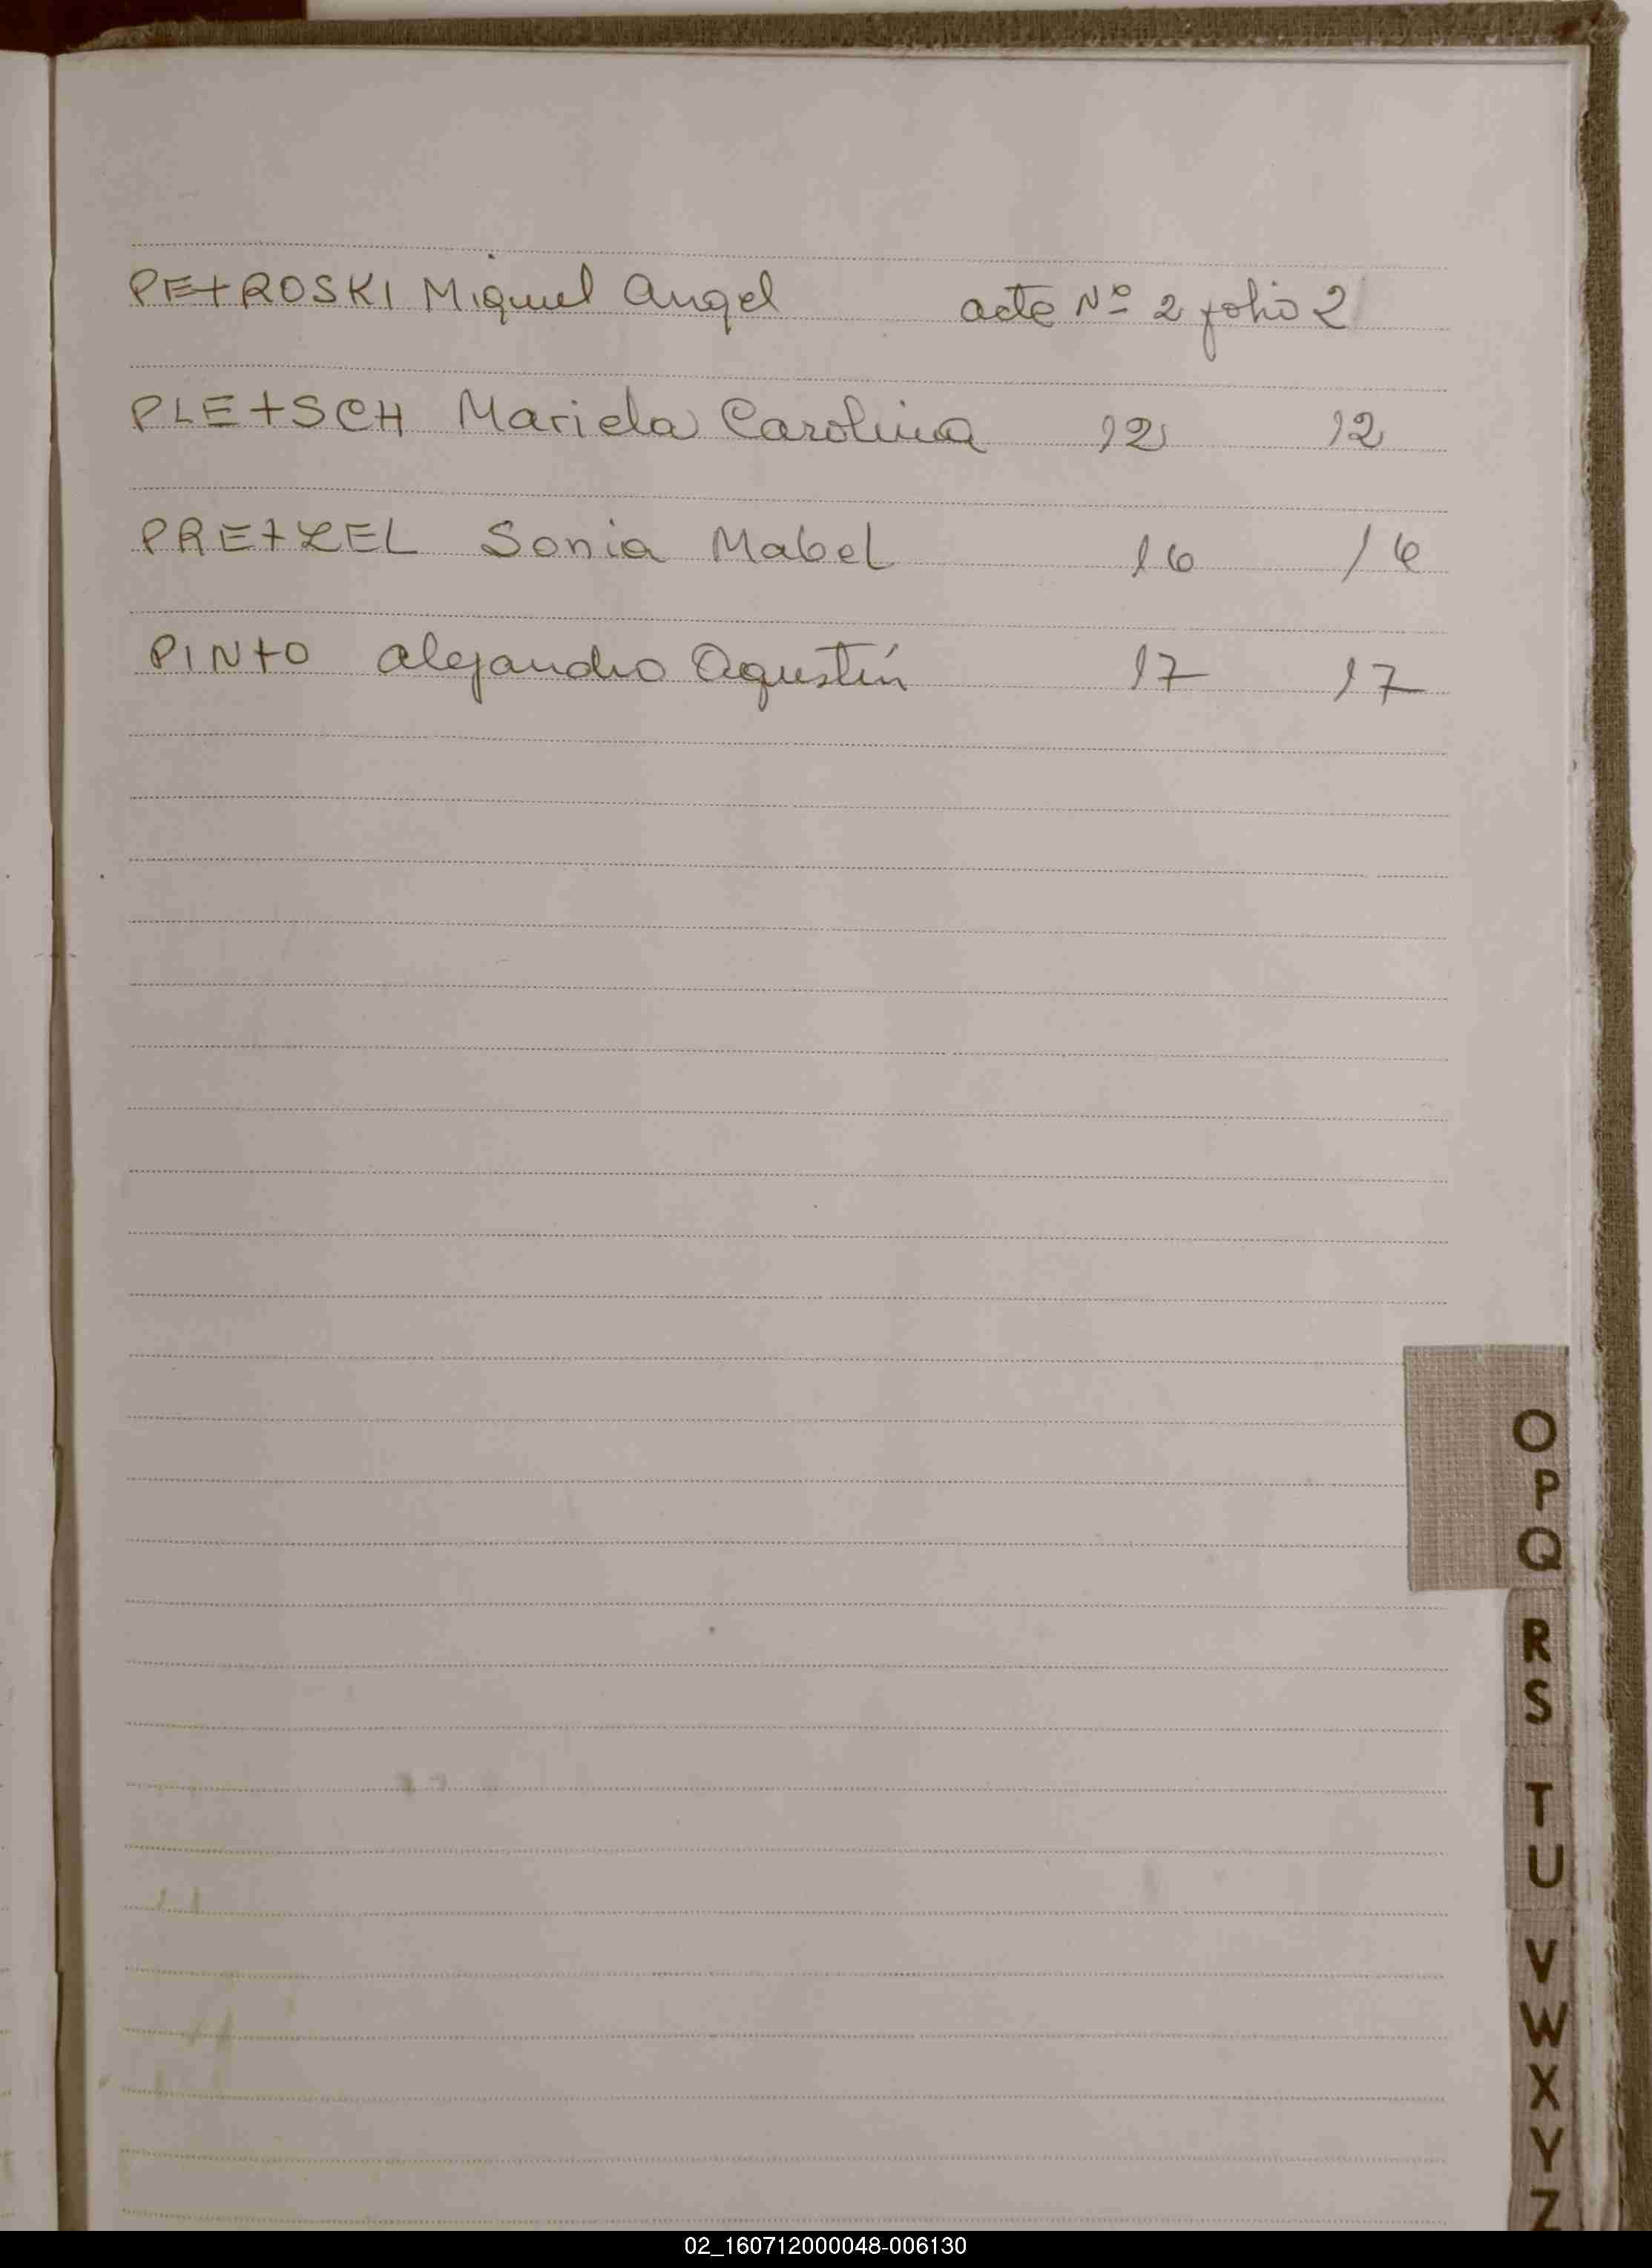 PETROSKI Miguel Angel acta Nº 2 folio 2
PLETSCH Mariela Carolina 12 12
PRETZEL Sonia Mabel 16 16
PINTO Alejandro Agustín 17 17
O
P
Q
R
S
T
U
V
W
X
Y
Z
02_160712000048-006130